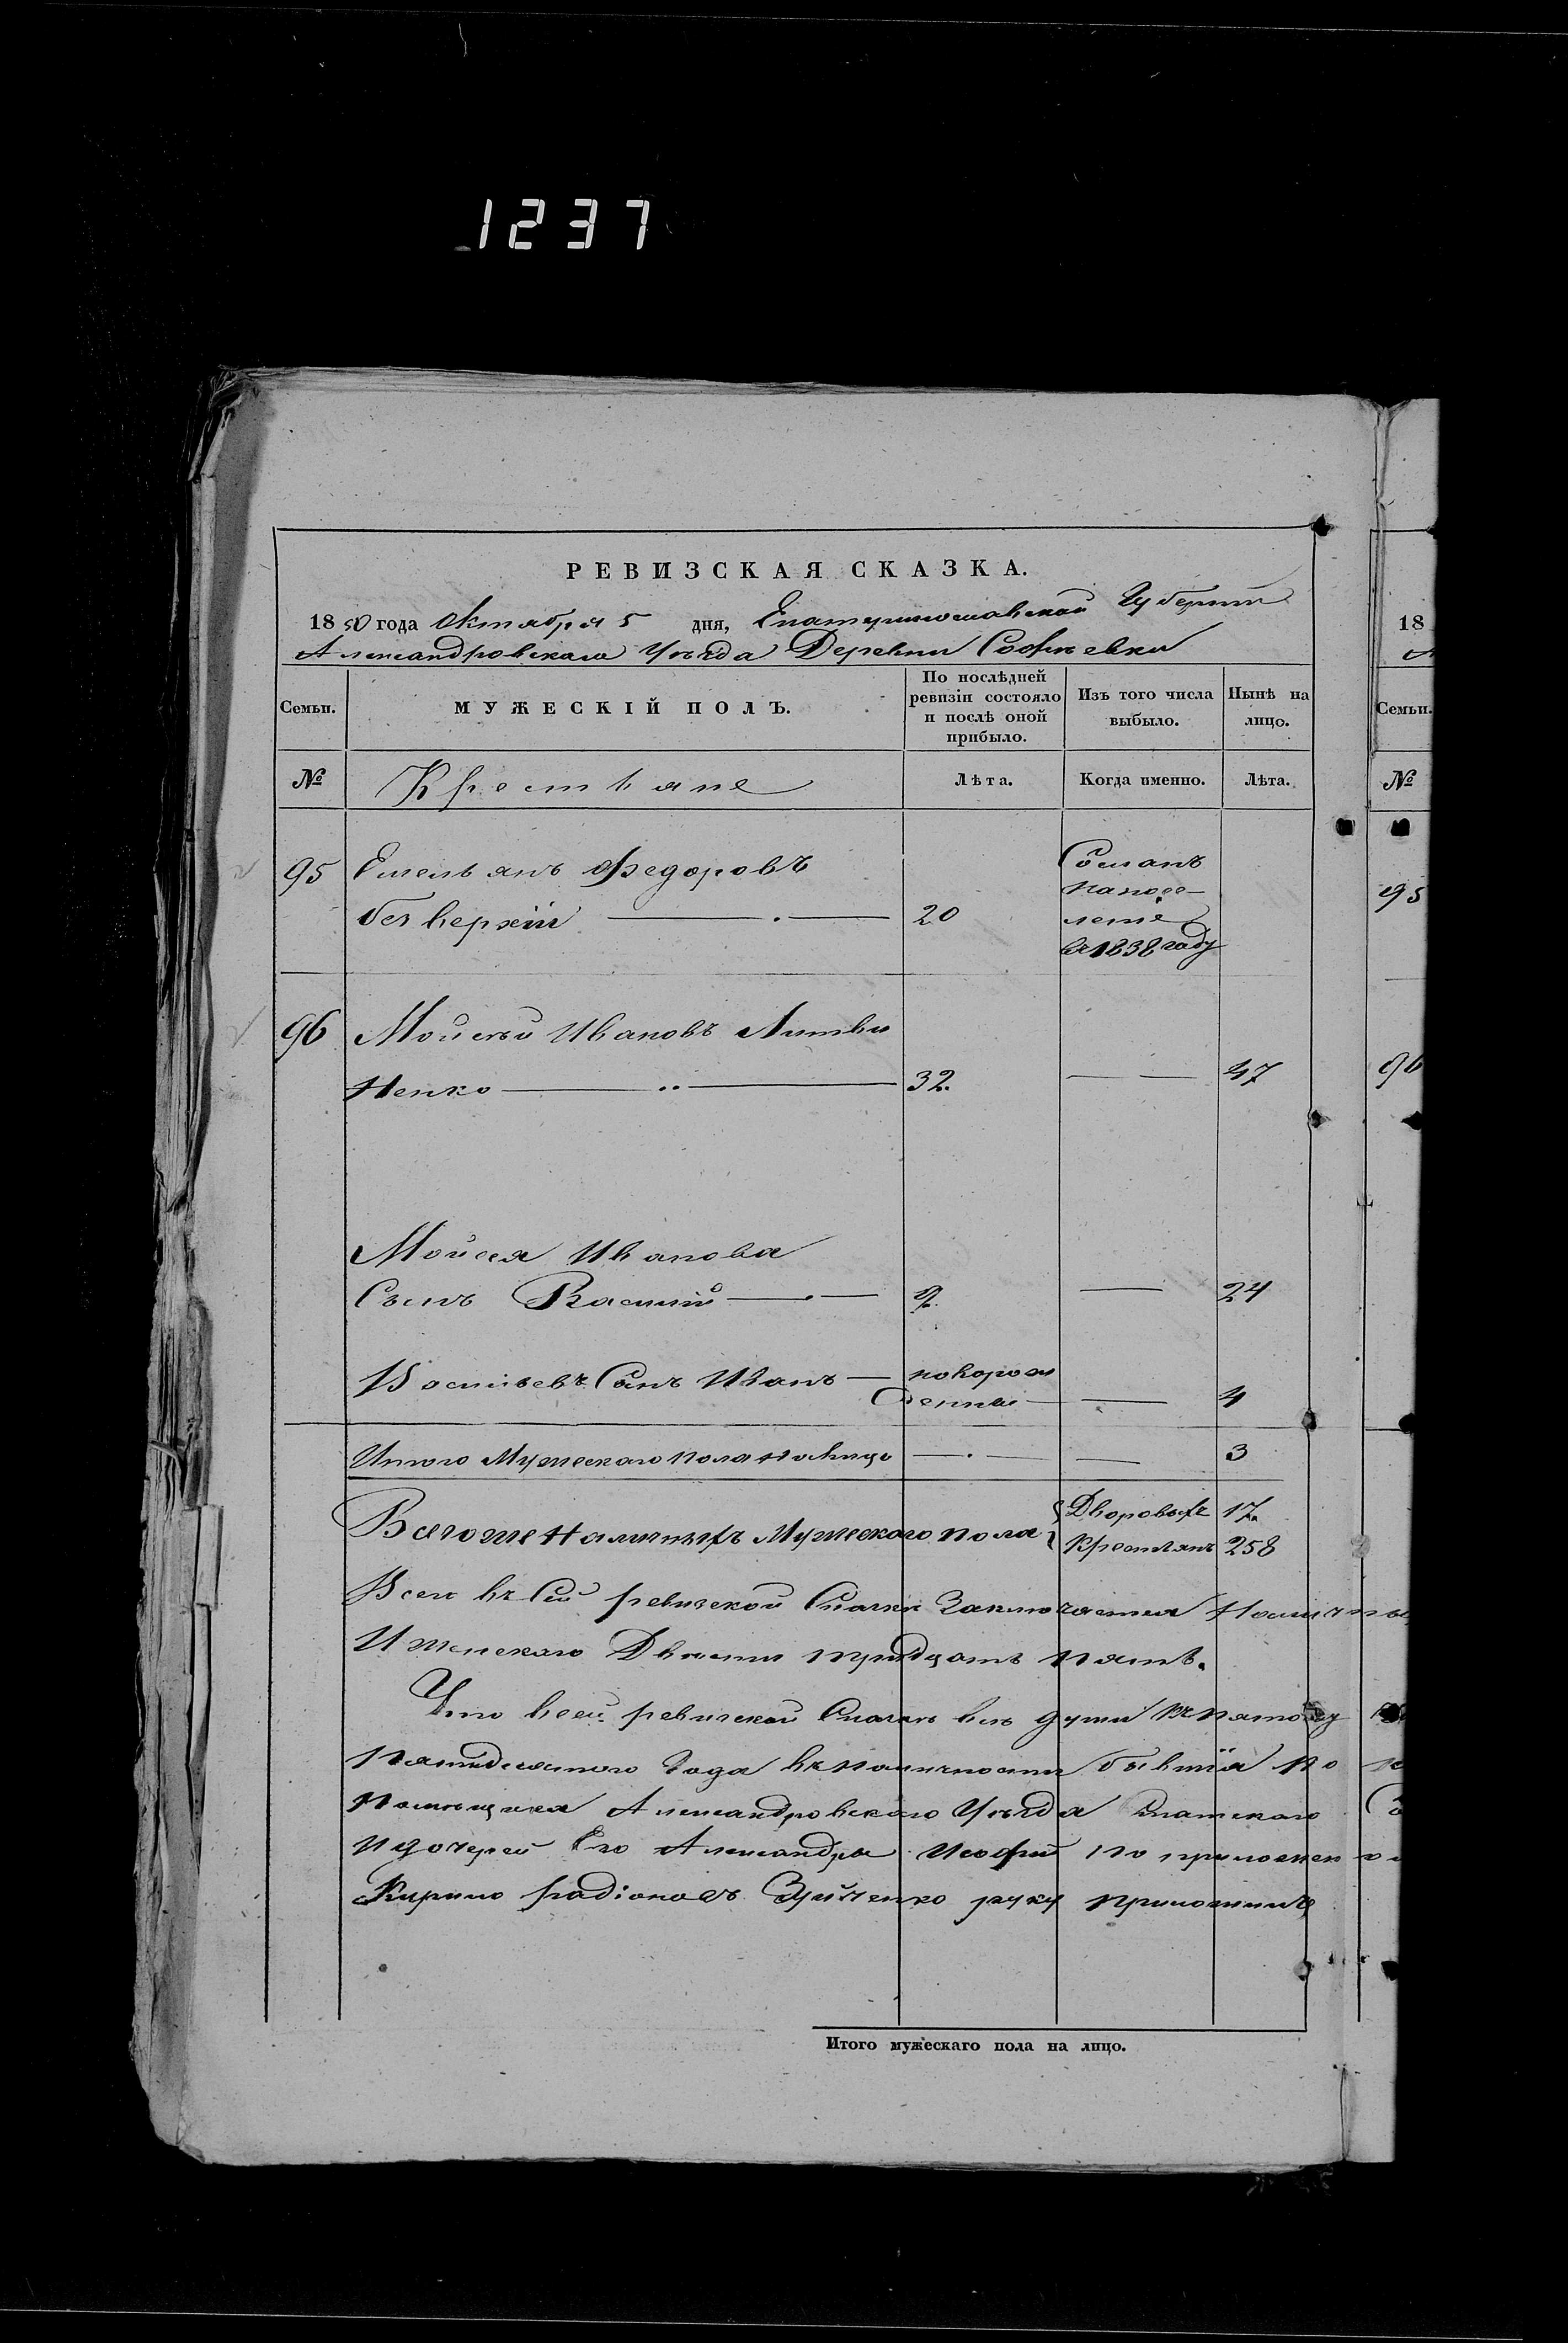 1237
РЕВИЗСКАЯ СКАЗКА.
1850 года Октября 5 дня, Екатеринославской Губернии
Александровскаго Уезда Деревни Софиевки
Семьи. МУЖЕСКІЙ ПОЛЪ. По послѣдней ревизіи состояло и послѣ оной прибыло. Изъ того числа выбыло. Нынѣ на лицо.
№ Крестьяне Лѣта. Когда именно. Лѣта.
95 Емельянъ Федоровъ
безверхій 20 Сосланъ
на посе-
ление
в 1838 году
96 Мойсей Ивановъ Литви
ненко 32. 47
Мойсея Иванова
Сынъ Василий 9. 24
Васильевъ Сынъ Иванъ новорож
денный 4
Итого Мужескаго пола на лицо 3
Всего же Наличныхъ Мужескаго пола Дворовыхъ 17.
Крестьянъ 258
Всего в Сей ревизской Сказки Заключается Наличны
И женскаго Двести тридцать пять.
Что в сей ревизской Сказке все души к пятому
Пятидесятого Года в наличности бывшiя по
помещика Александровского Уезда
и дочерей Его Александры и Софии по приложен
Кирило радіоновъ Зуйченко руку приложилъ
Итого мужескаго пола на лицо.
18
Семьи.
№
95
96